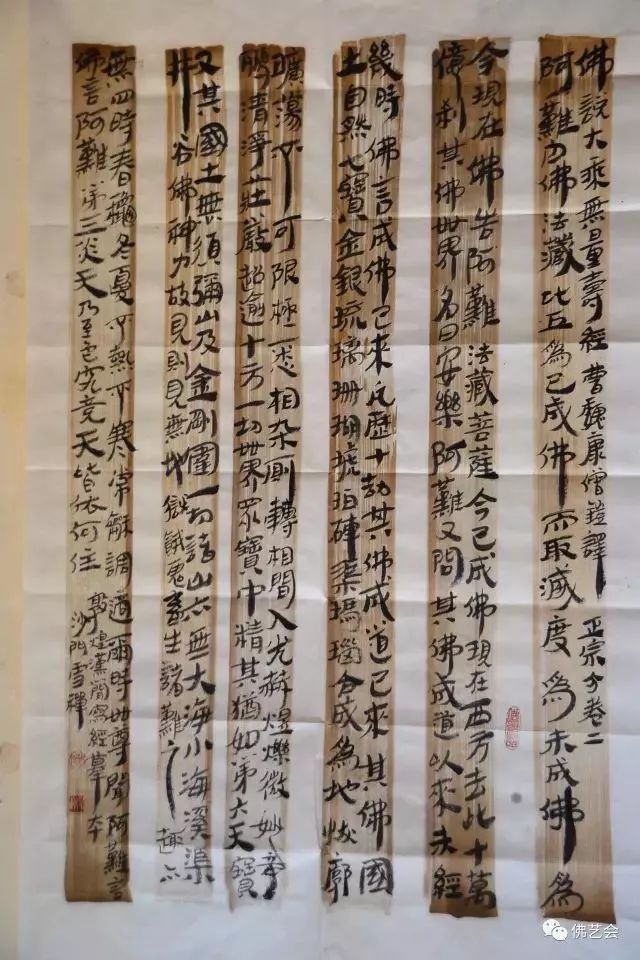 佛説大乘無量壽經曹魏康僧鎧譯 正宗分卷二
阿難白佛法藏比丘為已成佛而取滅度為未成佛為
今現在佛告阿難法藏菩薩今已成佛現在西方去此十萬
億刹其佛世界名曰安樂阿難又問其佛成道以來未經
幾時佛言成佛已來凡歷十劫其佛成道已來其佛國
土自然七寶金銀琉璃珊瑚琥珀硨磲瑪瑙合成為地恢廓
曠蕩不可限極悉相杂廁轉相間入光赫煜爍微妙奇
清淨莊嚴超逾十方一切世界眾寶中精其猶如第六天寶
又其國土無須彌山及金剛圍一切諸山亦無大海小海溪渠
井谷佛神力故見則見無地獄餓鬼畜生諸難之趣亦
無四時春龝冬夏不熱不寒常龢調適爾時世尊聞阿難言
佛言阿難第三炎天乃至色究竟天皆依何住
敦煌漢簡寫經摹本
沙門雪禪
佛艺会